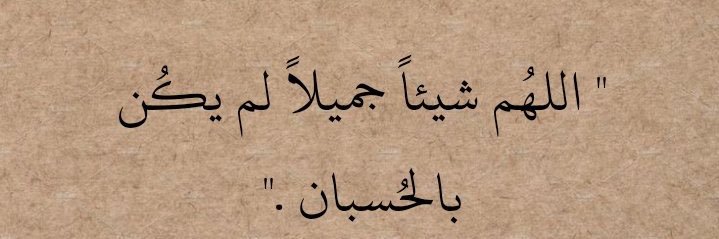 " اللهُم شيئاً جميلاً لم يكُن
بالحُسبان ."